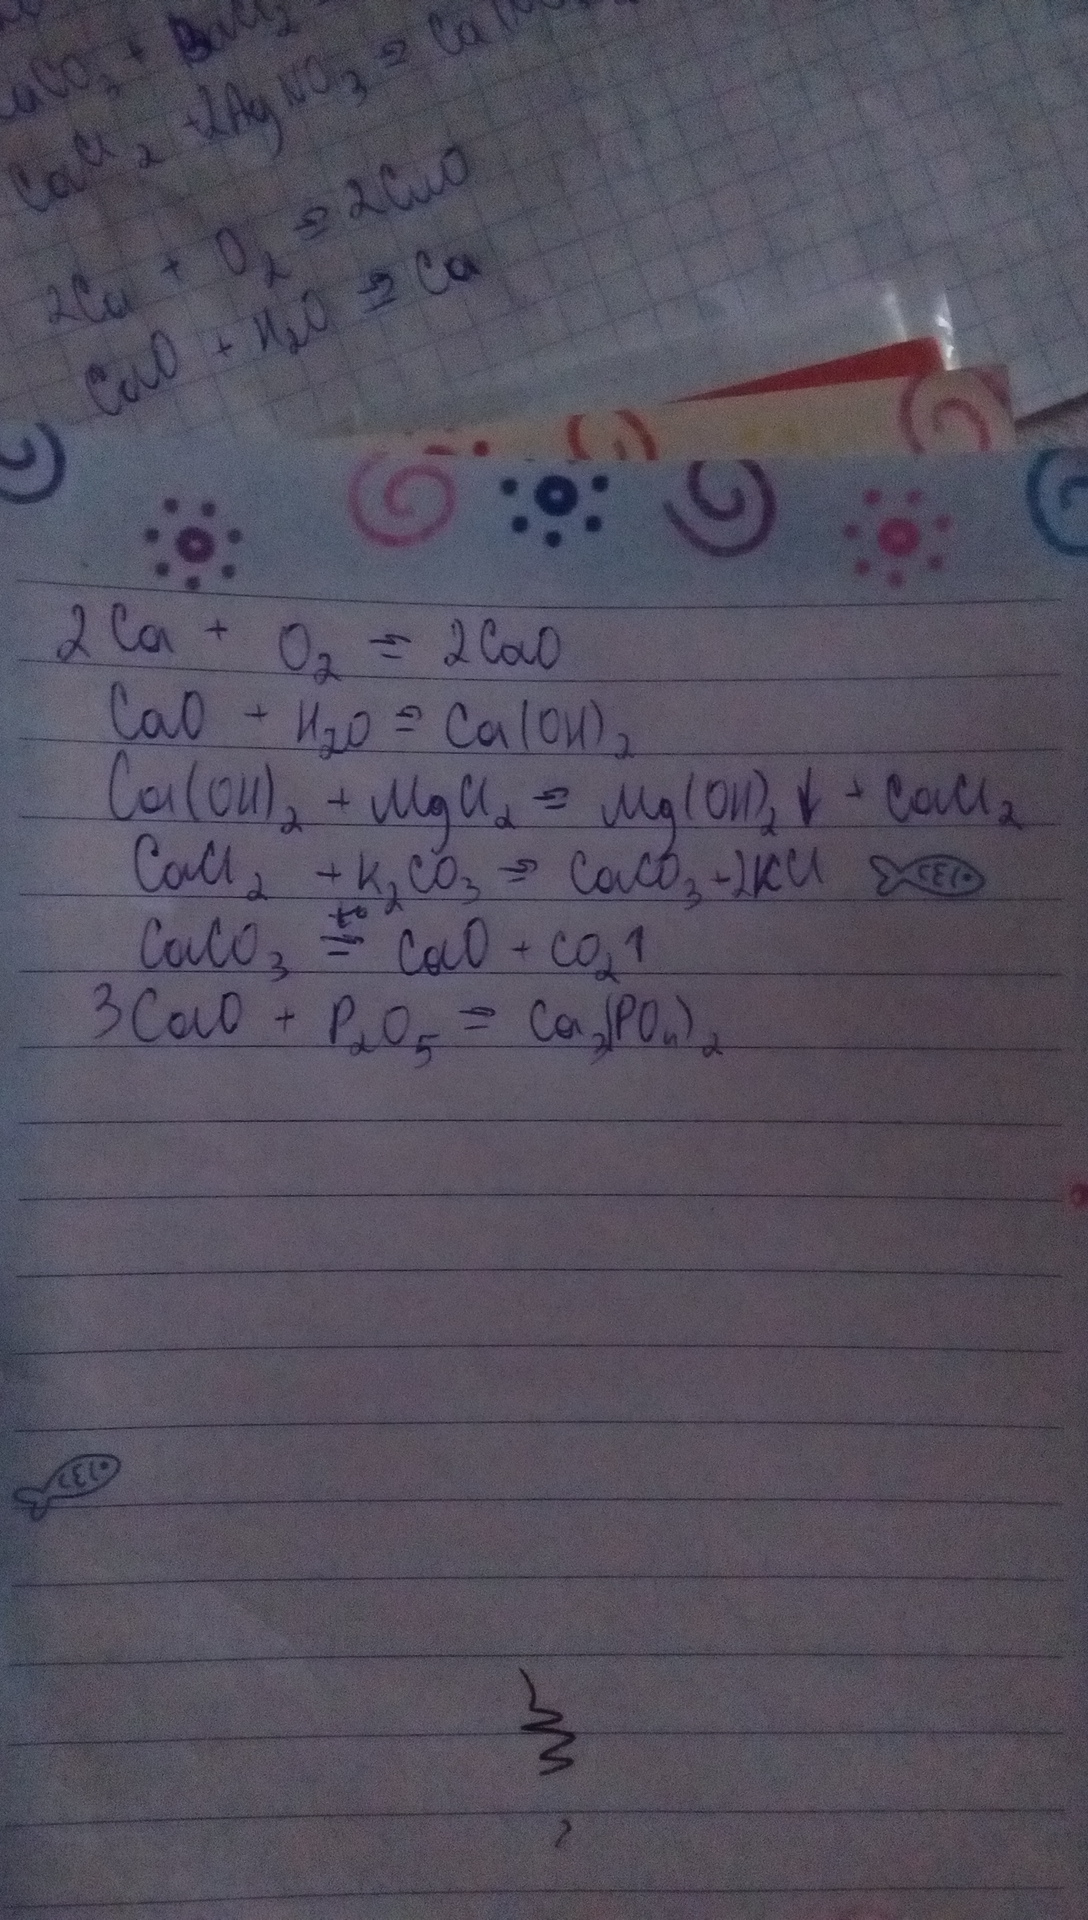 CaCO₃ + BaCl₂
CaCl₂ + 2AgNO₃ = Ca(
2Ca + O₂ = 2CaO
CaO + H₂O = Ca
2Ca + O₂ = 2CaO
CaO + H₂O = Ca(OH)₂
Ca(OH)₂ + MgCl₂ = Mg(OH)₂↓ + CaCl₂
CaCl₂ + K₂CO₃ = CaCO₃ + 2KCl
CaCO₃ =t° CaO + CO₂↑
3CaO + P₂O₅ = Ca₃(PO₄)₂